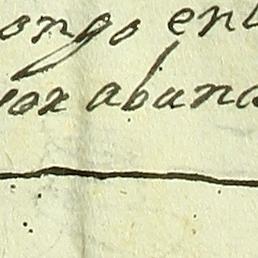 ongo en
or abund